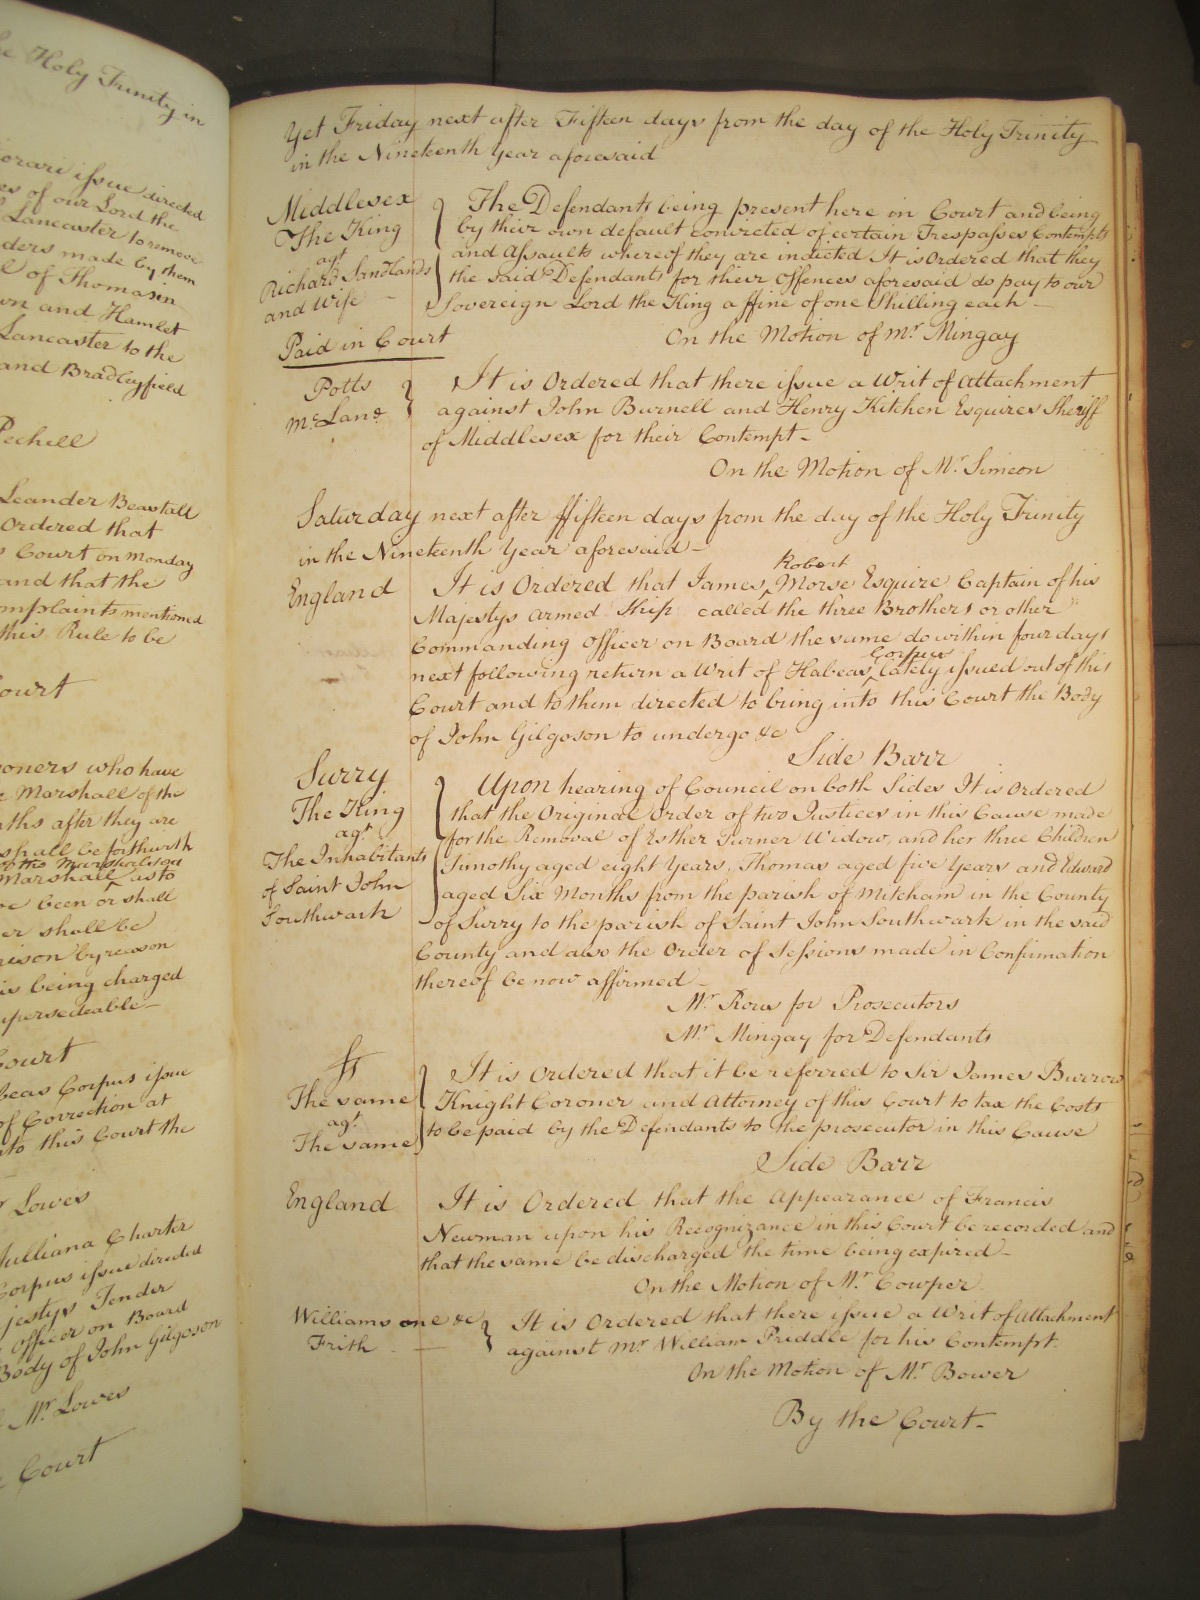 he Holy Trinity in
orari issue directed
es of our Lord the
Lancaster to remove
ders made by them
l of Thomasin
wn and Hamlet
Lancaster to the
and Bradleyfield
Pechell
Leander Beastall
Ordered that
s Court on Monday
and that the
omplaints mentioned
this Rule to be
Court
soners who have
e Marshall of the
nths after they are
shall be forthwith
of the Marshalsea
Marshall as to
ve been or shall
er shall be
rison by reason
is being charged
upersedeable
Court
beas Corpus issue
of Correction at
nto this Court the
r Lowes
Julliana Charter
Corpus issue directed
jestys Tender
officer on Board
Body of John Gilgoson
Mr. Lowes
e Court
Yet Friday next after Fifteen days from the day of the Holy Trinity
in the Nineteenth Year aforesaid
Middlesex
The King
agt.
Richard Sandlands
and Wife
The Defendants being present here in Court and being
by their own default convicted of certain Trespasses Contempts
and Assaults whereof they are indicted It is Ordered that they
the said Defendants for their Offences aforesaid do pay to our
Sovereign Lord the King a ffine of one Shilling each
Paid in Court
On the Motion of Mr. Mingay
Potts
McLane
It is Ordered that there issue a Writ of Attachment
against John Burnell and Henry Kitchen Esquires Sheriff
of Middlesex for their Contempt
On the Motion of Mr. Simeon
Saturday next after ffifteen days from the day of the Holy Trinity
in the Nineteenth Year aforesaid
England
It is Ordered that James ^ Robert Morse Esquire Captain of his
Majestys Armed Ship called the three Brothers or other
Commanding Officer on Board the same do within four days
next following return a Writ of Habeas ^ Corpus lately issued out of this
Court and to them directed to bring into this Court the Body
of John Gilgoson to undergo &c
Side Barr
Surry
The King
agt.
The Inhabitants
of Saint John
Southwark
Upon hearing of Council on both Sides It is Ordered
that the Original Order of two Justices in this Cause made
for the Removal of Esther Turner Widow, and her three Children
Timothy aged eight Years, Thomas aged five Years and Edward
aged Six Months from the parish of Mitcham in the County
of Surry to the parish of Saint John Southwark in the said
County and also the Order of Sessions made in Confirmation
thereof be now affirmed
Mr. Rous for Prosecutors
Mr. Mingay for Defendants
Ss
The same
agt.
The same
It is Ordered that it be referred to Sir James Burrow
Knight Coroner and Attorney of this Court to tax the Costs
to be paid by the Defendants to the prosecutor in this Cause
Side Barr
England
It is Ordered that the Appearance of Francis
Newman upon his Recognizance in this Court be recorded and
that the same be discharged the time being expired
On the Motion of Mr. Cowper
Williams one &c
Frith
It is Ordered that there issue a Writ of Attachment
against Mr. William Priddle for his Contempt.
On the Motion of Mr. Bower
By the Court